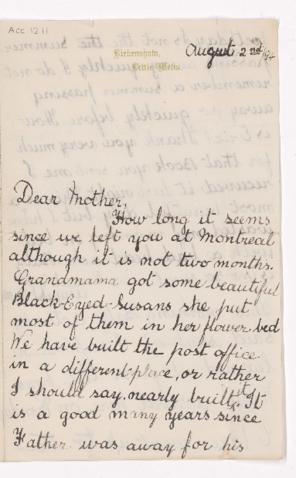 Acc 1211
Birkenshaw,
Métis
August 2nd
Dear Mother,
How long it seems
since we left you at Montreal
although it is not two months.
Grandmama got some beautiful
Black-Eyed-Susans she put
most of them in her flower bed
We have built the post office
in a different place, or rather
I should say, nearly built it. It
is a good many years since
Father was away for his